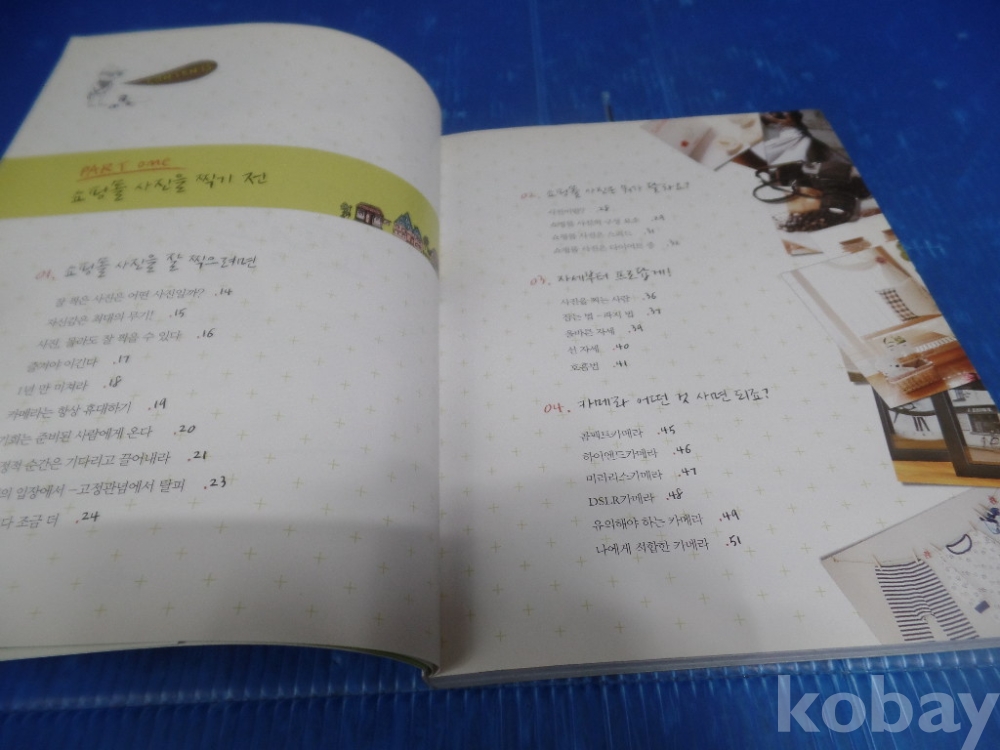 PART one
쇼핑몰 사진을 찍기 전
01. 쇼핑몰 사진을 잘 찍으려면
잘 찍은 사진은 어떤 사진일까? .14
자신감은 최대의 무기! .15
사진, 몰라도 잘 찍을 수 있다 .16
즐겨야 이긴다 .17
1년 만 미쳐라 .18
카메라는 항상 휴대하기 .19
기회는 준비된 사람에게 온다 .20
정적 순간은 기다리고 끌어내라 .21
의 입장에서 - 고정관념에서 탈피 .23
다 조금 더 .24
02. 쇼핑몰 사진은 뭐가 달라요?
사진이란? .28
쇼핑몰 사진의 구성 요소 .29
쇼핑몰 사진은 스피드 .31
쇼핑몰 사진은 다이어트 중 .32
03. 자세부터 프로답게!
사진을 찍는 사람 .36
잡는 법 - 파지 법 .37
올바른 자세 .39
선 자세 .40
호흡법 .41
04. 카메라 어떤 걸 사면 되죠?
콤팩트카메라 .45
하이엔드카메라 .46
미러리스카메라 .47
DSLR카메라 .48
유의해야 하는 카메라 .49
나에게 적합한 카메라 .51
kobay